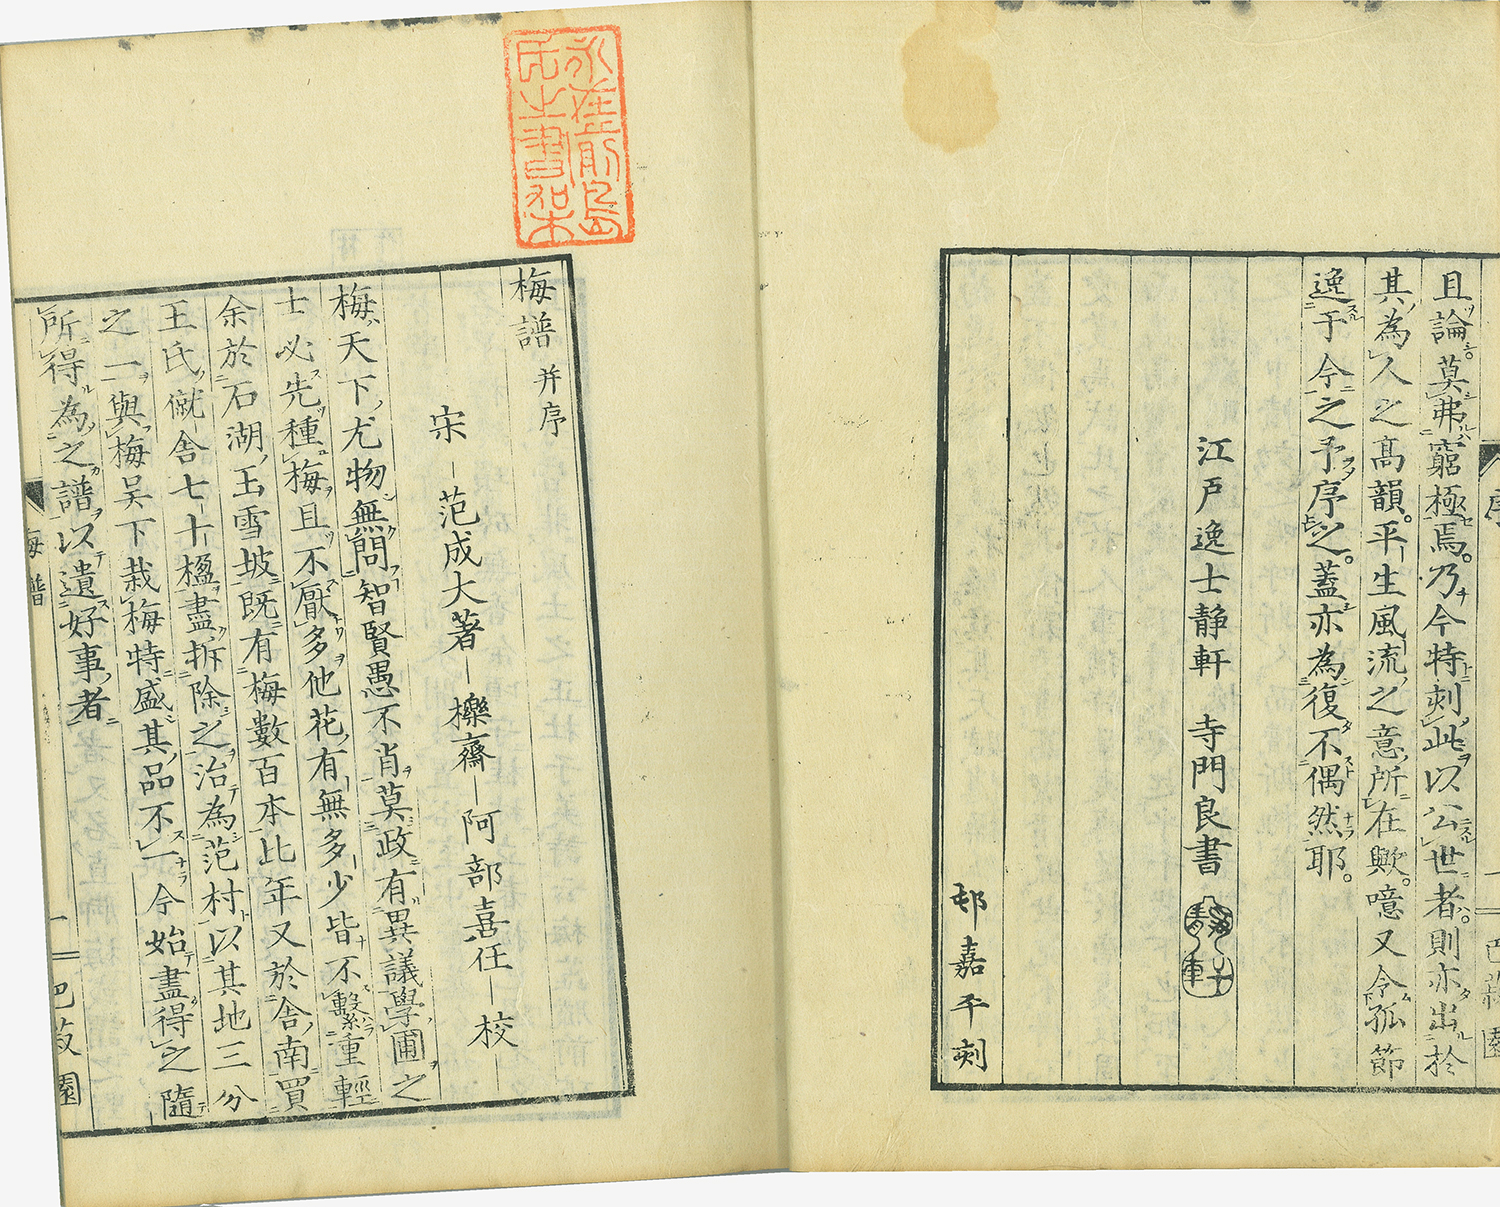 且論莫弗窮極焉。乃今特刻此以公世者。則亦出於
其為人之高韻。平生風流之意所在歟。噫又令孤節
逸于今之予序之。蓋亦為復不偶然耶。
江戸逸士静軒 寺門良書
邨嘉平刻
序
梅譜并序
宋 范成大著 櫟齋 阿部喜任 校
梅天下尤物無問智賢愚不肖莫敢有異議學圃之
士必先種梅且不厭多他花有無多少皆不繫重輕
余於石湖玉雪坡既有梅數百本比年又於舍南買
王氏僦舍七十楹盡拆除之治為范村以其地三分
之一與梅吳下栽梅特盛其品不一今始盡得之隨
所得為之譜以遺好事者
梅譜 一 巴菽園